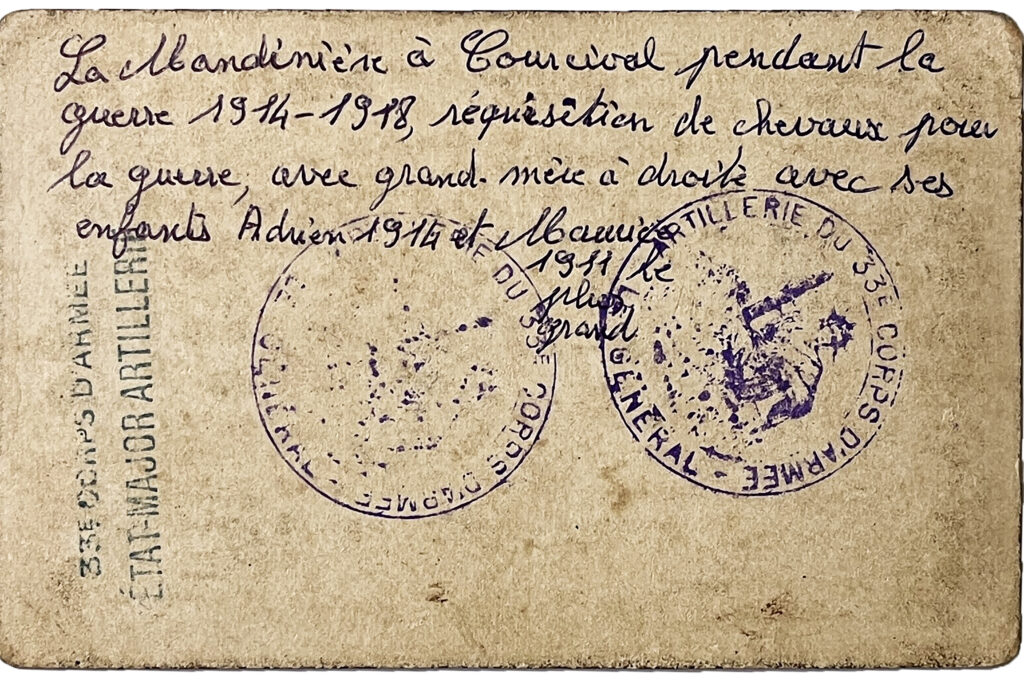 La Mandinière à Courcival pendant la
guerre 1914-1918, réquisition de chevaux pour
la guerre, avec grand-mère à droite avec ses
enfants Adrien 1914 et Maurice
1911 le
plus
grand
33E CORPS D'ARMÉE
ÉTAT-MAJOR ARTILLERIE
DU 33E CORPS D'ARMÉE
ARTILLERIE DU 33E CORPS D'ARMÉE - GÉNÉRAL